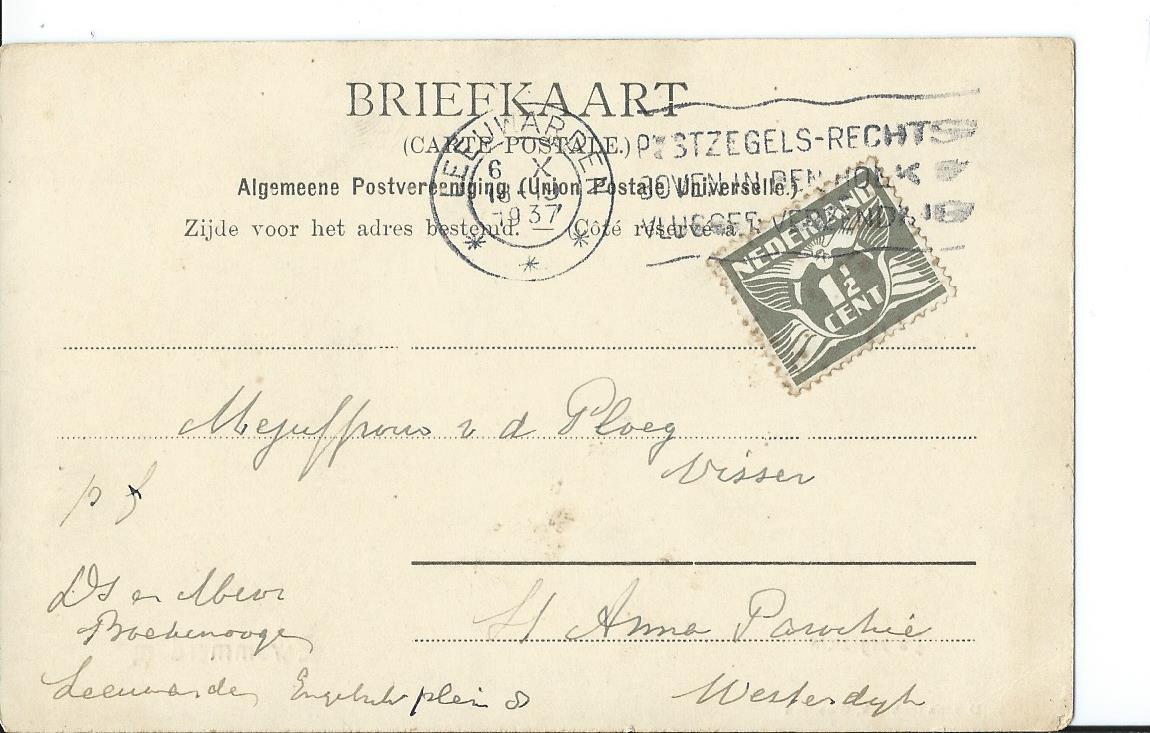 BRIEFKAART
(CARTE POSTALE.)
Algemeene Postvereeniging (Union Postale Universelle.)
Zijde voor het adres bestemd. — (Côté réservé à
LEEUWARDEN
6 X
1937
POSTZEGELS-RECHTS
BOVEN IN DEN HOEK
VLUGGER VERZENDING
NEDERLAND
1½
CENT
Mejuffrouw v d Ploeg
Visser
p f
Ds en Mevr
Boekenoogen
Leeuwarden plein 8
St Anna Parochie
Westerdyk